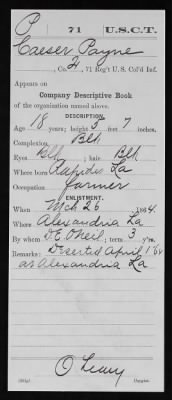 P 71 U.S.C.T.
Caeser Payne
, Co. H, 71 Reg't U. S. Col'd Inf.
Appears on
Company Descriptive Book
of the organization named above.
DESCRIPTION.
Age 18 years; height 5 feet 7 inches.
Complexion Blk
Eyes Blk; hair Blk
Where born Rapides La
Occupation farmer
ENLISTMENT.
When Mch 26, 1864.
Where Alexandria La
By whom D. E. O'Neil; term 3 y'rs.
Remarks: Deserted April 1 '64
at Alexandria La
O'Leary
Copyist.